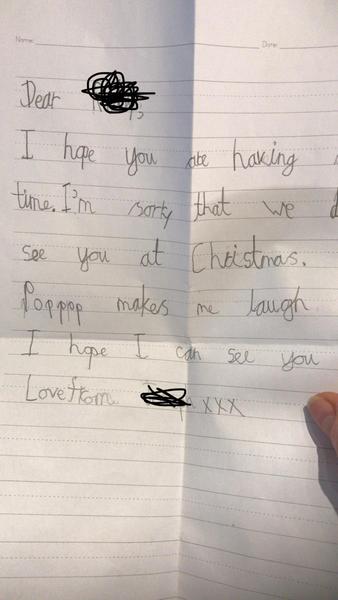 Name:
Date
Dear
I hope you are having
time. I'm sorry that we
see you at Christmas.
Popppp makes me laugh
I hope I can see you
Love from xxx